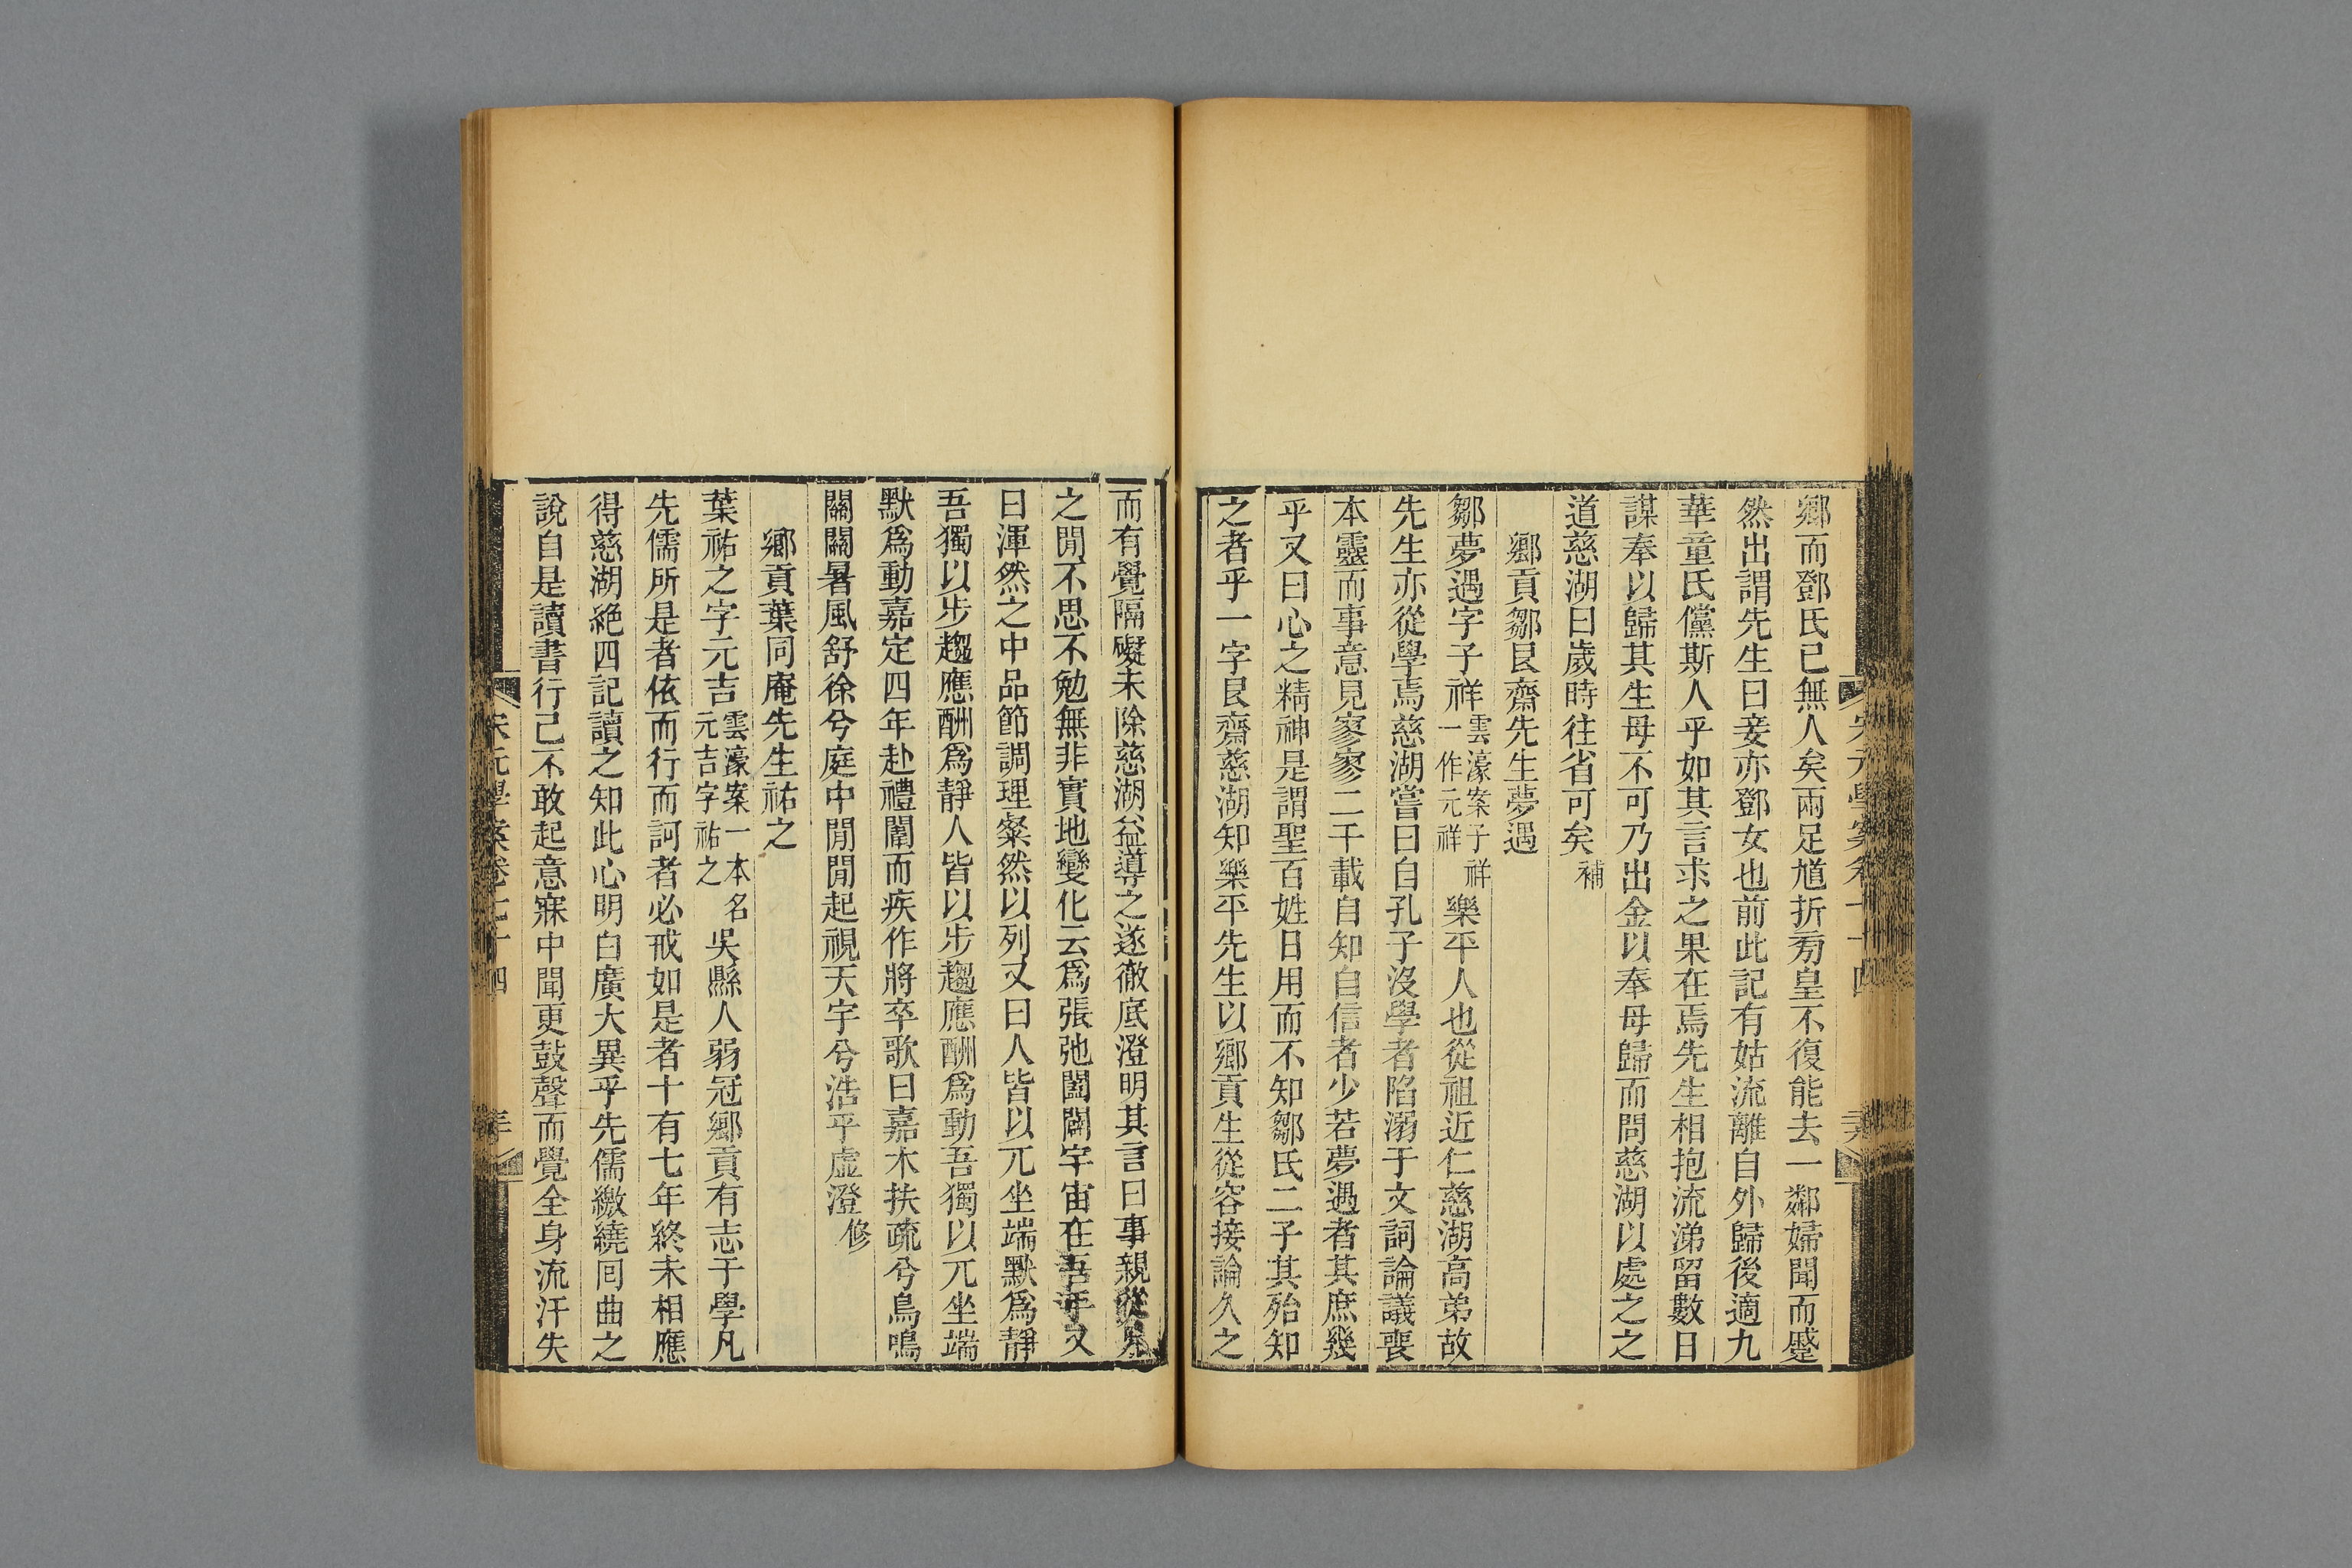 鄉而鄧氏已無人矣兩足尰折旁皇不復能去一鄰婦聞而蹙
然出謂先生曰妾亦鄧女也前此記有姑流離自外歸後適九
華童氏儻斯人乎如其言求之果在焉先生相抱流涕留數日
謀奉以歸其生母不可乃出金以奉母歸而問慈湖以處之之
道慈湖曰歲時往省可矣補
鄉貢鄒艮齋先生夢遇
鄒夢遇字子祥雲濠案子祥一作元祥樂平人也從祖近仁慈湖高弟故
先生亦從學焉慈湖嘗曰自孔子沒學者陷溺于文詞論議喪
本靈而事意見寥寥二千載自知自信者少若夢遇者其庶幾
乎又曰心之精神是謂聖百姓日用而不知鄒氏二子其殆知
之者乎一字艮齋慈湖知樂平先生以鄉貢生從容接論久之
而有覺隔礙未除慈湖益導之遂徹底澄明其言曰事親從兄
之閒不思不勉無非實地變化云為張弛闔闢宇宙在吾手又
曰渾然之中品節調理粲然以列又曰人皆以兀坐端默為靜
吾獨以步趨應酬為靜人皆以步趨應酬為動吾獨以兀坐端
默為動嘉定四年赴禮闈而疾作將卒歌曰嘉木扶疏兮鳥鳴
關關暑風舒徐兮庭中閒閒起視天宇兮浩乎虛澄修
鄉貢葉同庵先生祐之
葉祐之字元吉雲濠案一本名元吉字祐之吳縣人弱冠鄉貢有志于學凡
先儒所是者依而行而訶者必戒如是者十有七年終未相應
得慈湖絕四記讀之知此心明白廣大異乎先儒繳繞囘曲之
說自是讀書行己不敢起意寐中聞更鼓聲而覺全身流汗失
宋元學案卷七十四